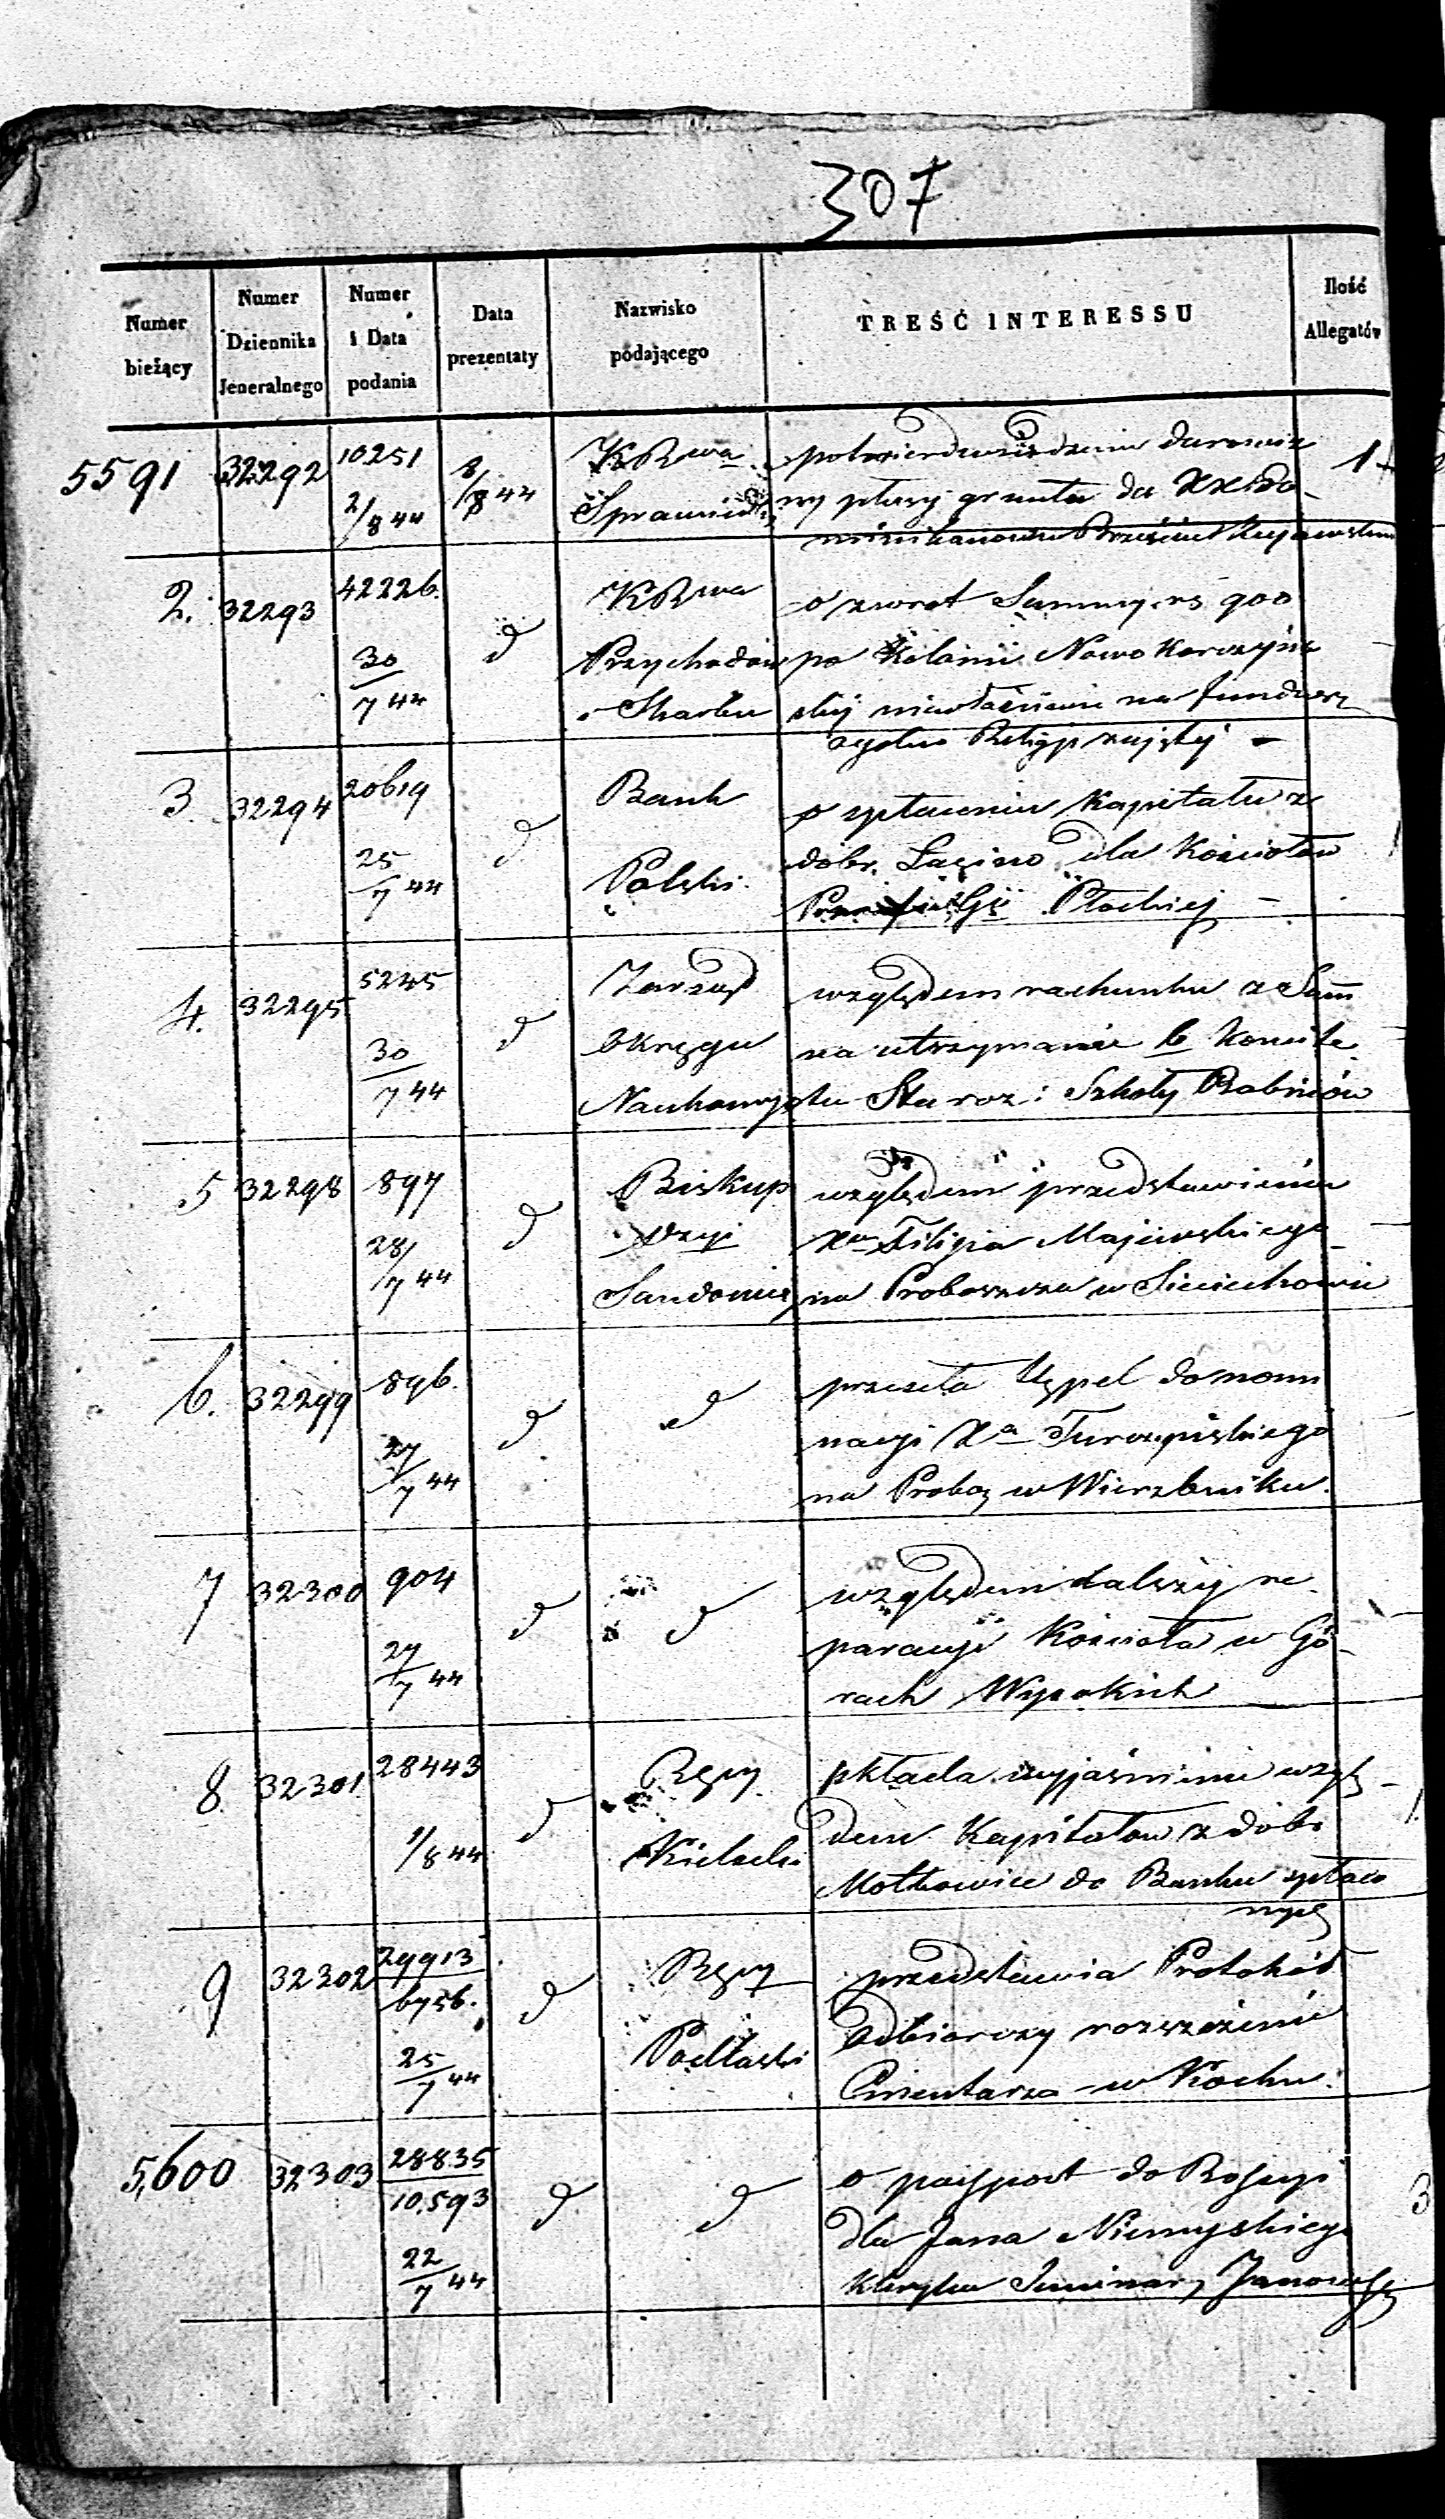 307
Numer bieżący
Numer Dziennika Jeneralnego
Numer i Data podania
Data prezentaty
Nazwisko podającego
TREŚĆ INTERESSU
Ilość Allegatów
5591 32292 10251 2/8 44 8/8 44
KRwa
Sprawied
darowiz
ny gruntu
Kujawskim
2. 32293 42226. 30/7 44 d
KRwa
Przychodów
i Skarbu
o zwrot Summy rs 900
po Kolonii Nowo Korczyńs
kiej niewłaściwie na fundusz
ogólno Religij zajętej -
3. 32294 20619 25/7 44 d
Bank
Polski.
o spłaceniu Kapitału z
dobr. Łacino dla Kościołów
Gii Płockiej -
4. 32295 5245 30/7 44 d
Zarząd
Okręgu
Naukowy
względem rachunku z Summ
na utrzymanie b Komite
tu Staroz: Szkoły Rabinów
5 32298 897 28/7 44 d
Biskup
Dzyi
Sandomie
względem przedstawienia
Xa Filipa Majewskiego
na Proboszcza w Sieciechowie
6. 32299 896. 27/7 44 d d
przesyła Stępel do nomi
nacyi Xa
na Probosz w Wierzbniku.
7 32300 904 27/7 44 d d
względem dalszéj re-
paracyi Kościoła w Gó-
rach Wysokich
8. 32301 28443 1/8 44 d
Rząd
Kielecki
składa wyjaśnienie wzglę
dem Kapitałów z dóbr
Mołkowice do Banku spłaco
nych
9 32302 29913/6756. 25/7 44 d
Rząd
Podlaski
przedstawia Protokół
Odbiorczy rozszerzenia
Cmentarza w Kocku.
5,600 32303 28835/10.593 22/7 44 d d
o paszport do Rossyi
dla Jana Niemyskiego
Kleryka Seminar. Janows
3